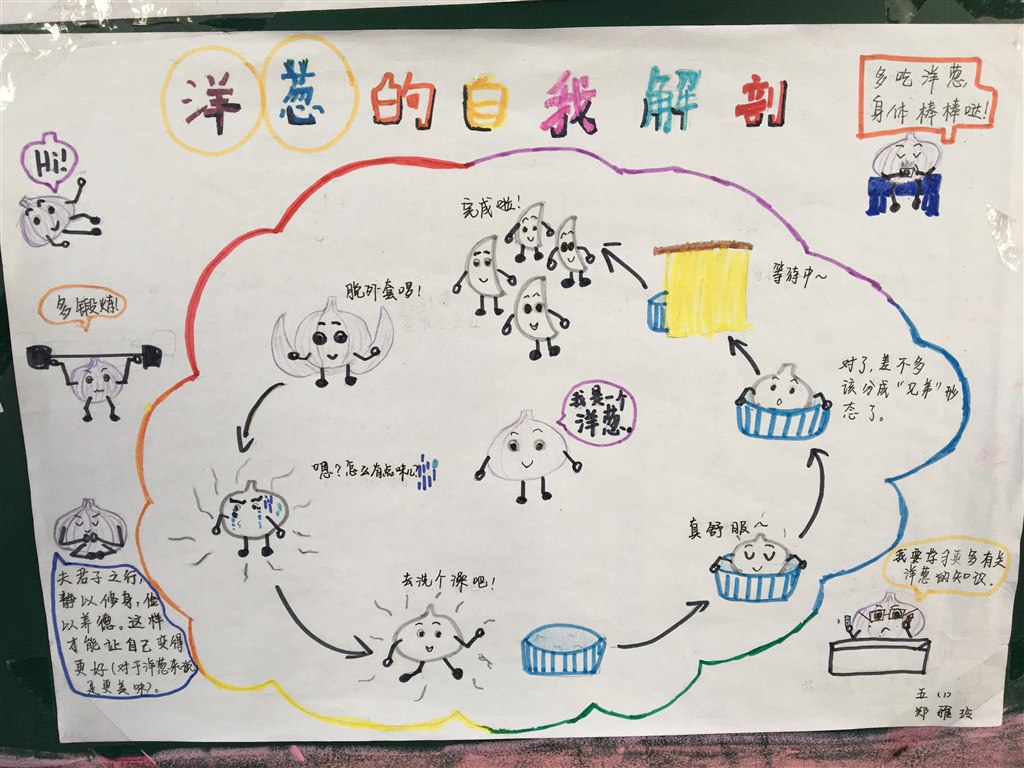 洋葱的自我解剖
多吃洋葱
身体棒棒哒!
Hi!
完成啦!
等待中~
脱外套喽!
多锻炼!
对了,差不多
该分成"兄弟"形
态了。
我是一个
洋葱。
嗯?怎么有点味儿?
真舒服~
去洗个澡吧!
我要学习更多有关
洋葱的知识.
夫君子之行,
静以修身,俭
以养德。这样
才能让自己变得
更好(对于洋葱来说
是更美味)。
五(1)
郑雅